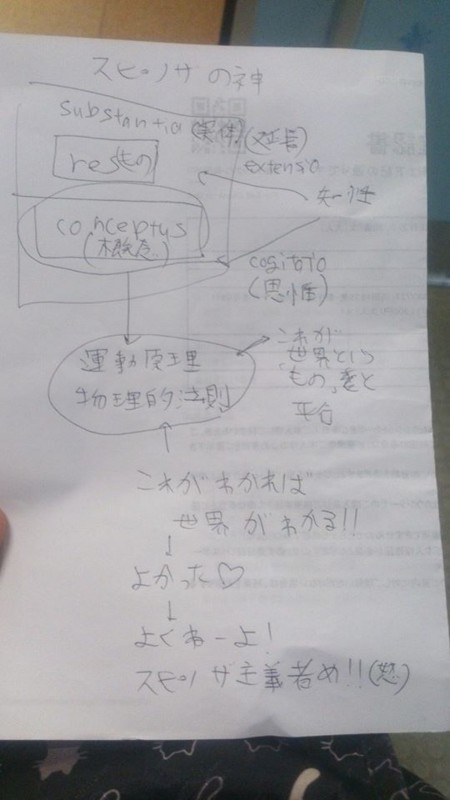 スピノザの神
substantia (実体)
(延長)
extensio
resもの
知性
conceptus
(概念)
cogitatio
(思惟)
運動原理
物理的法則
これが
世界という
もの、を
これがわかれば
世界がわかる!!
↓
よかった♡
↓
よくねーよ!
スピノザ主義者め!!(怒)